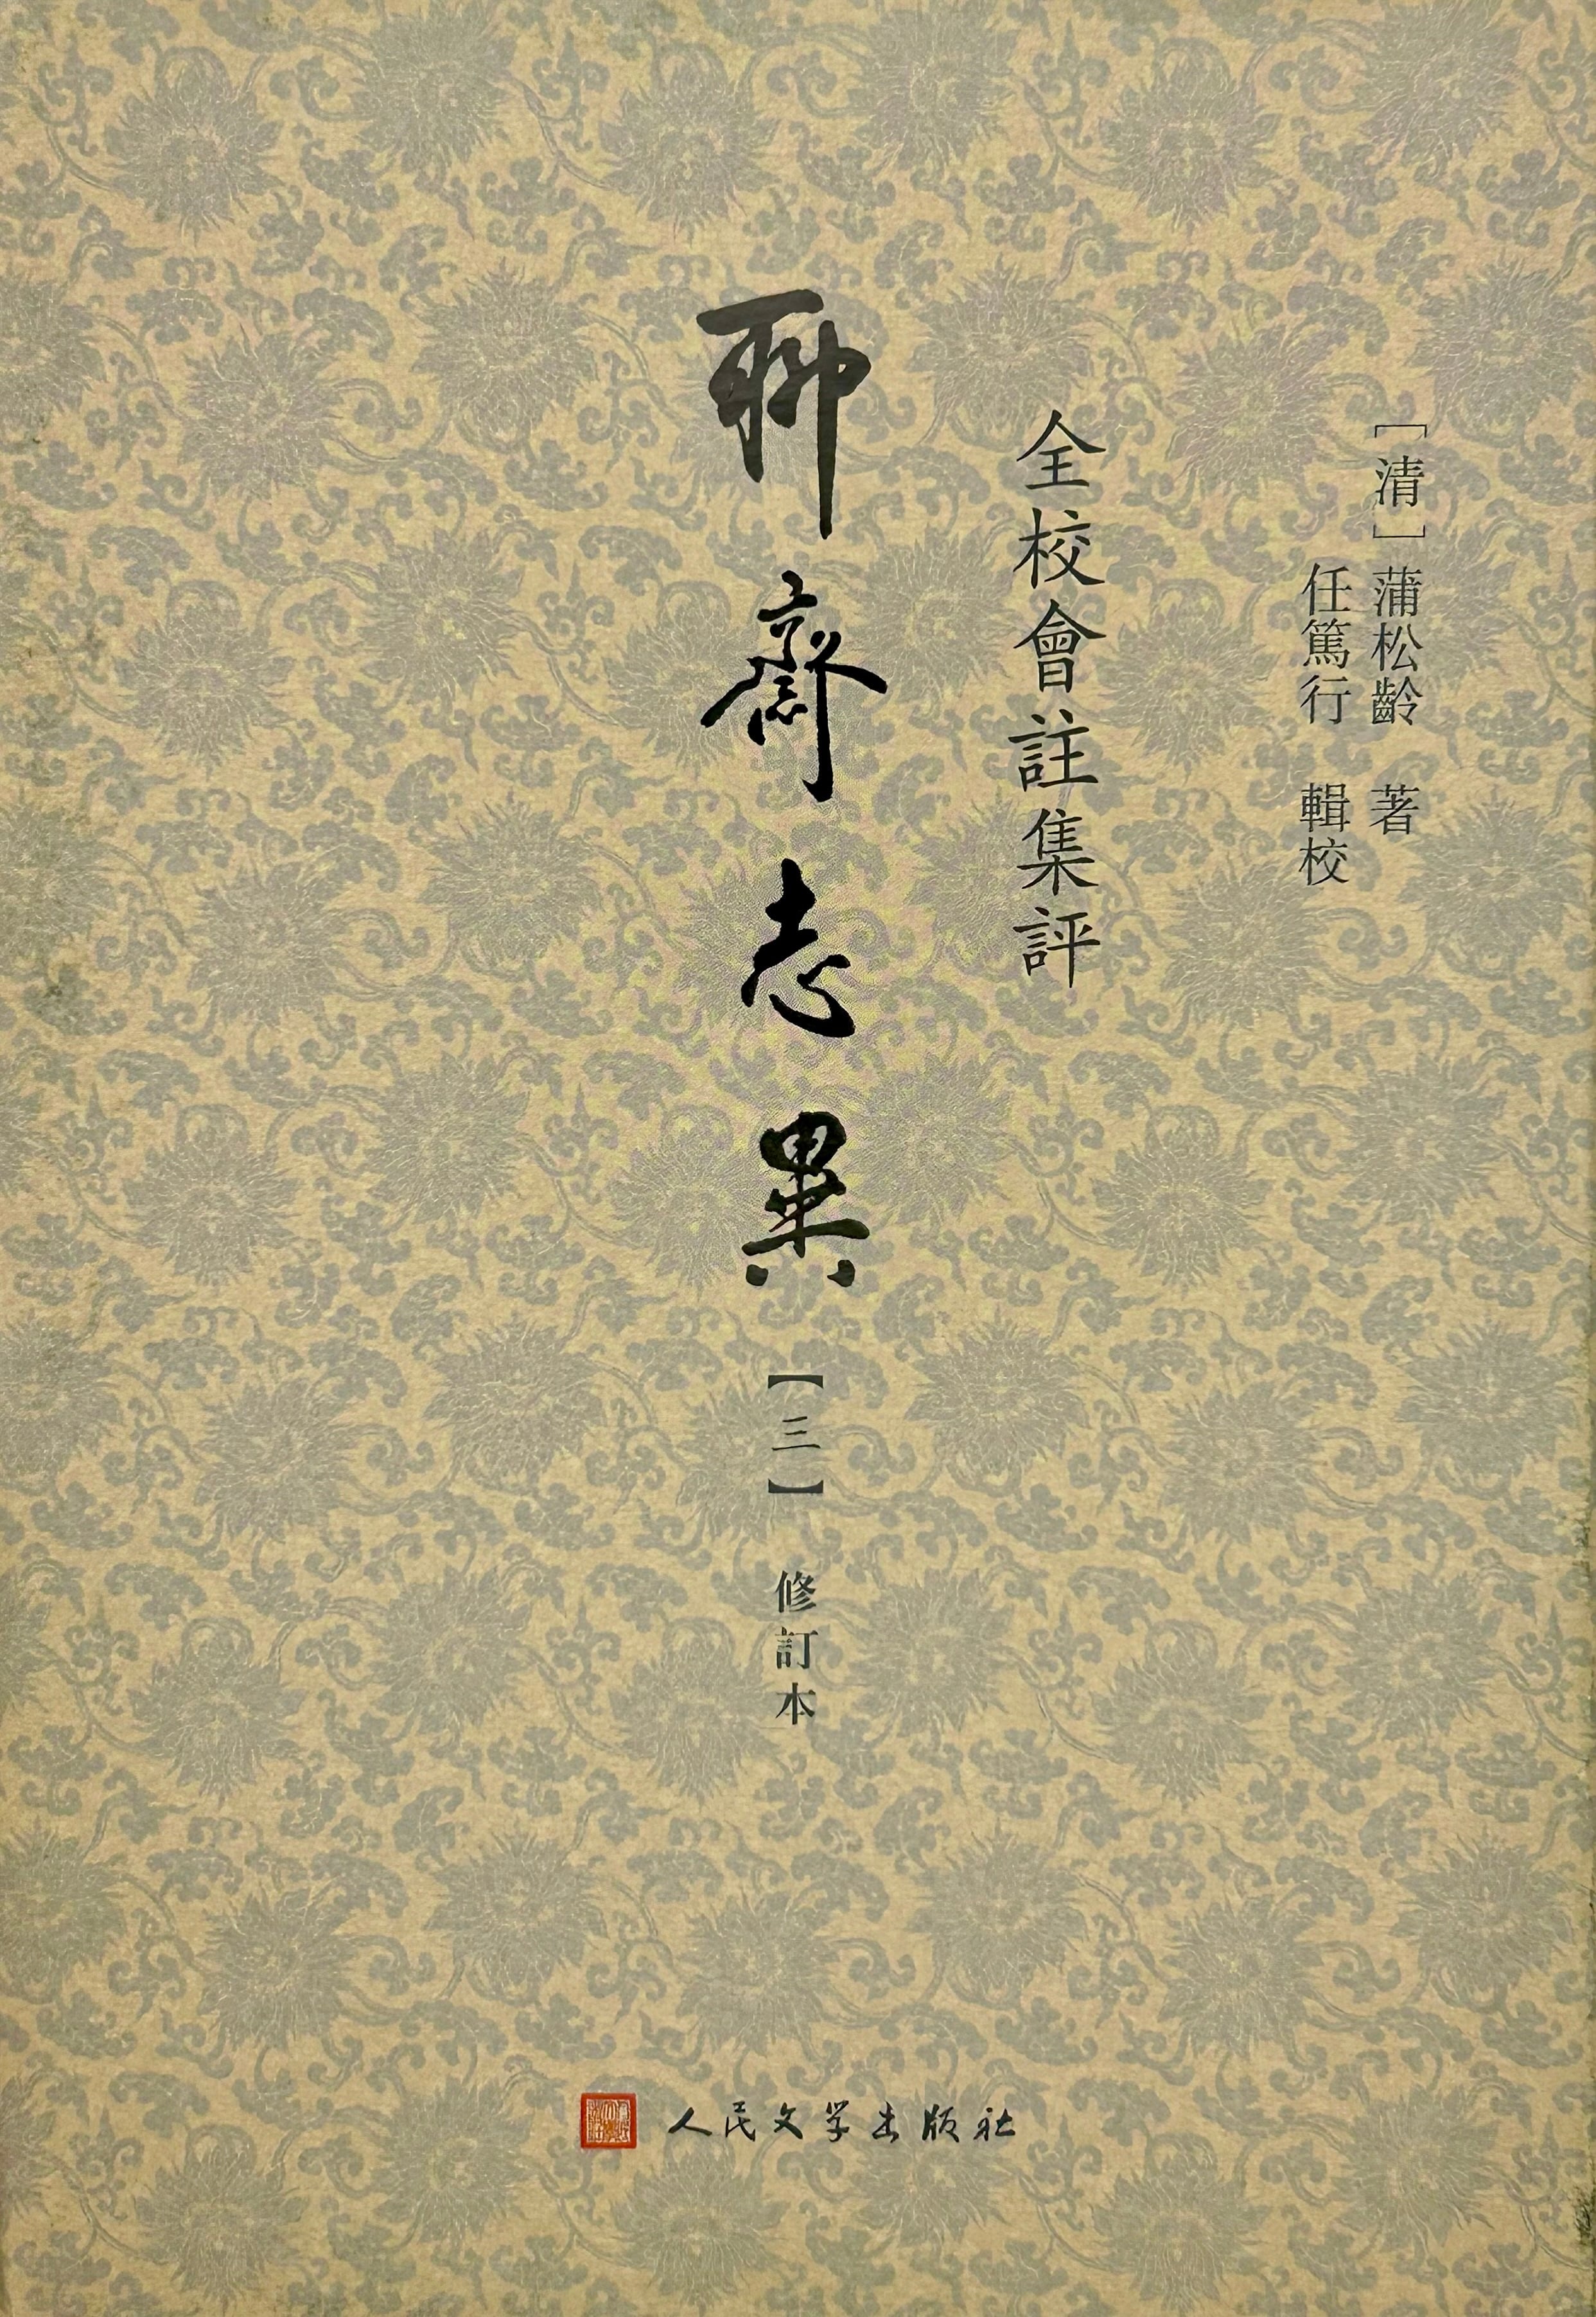 [清]蒲松齡 著
任篤行 輯校
全校會註集評
聊齋志異
【三】
修訂本
人民文学出版社